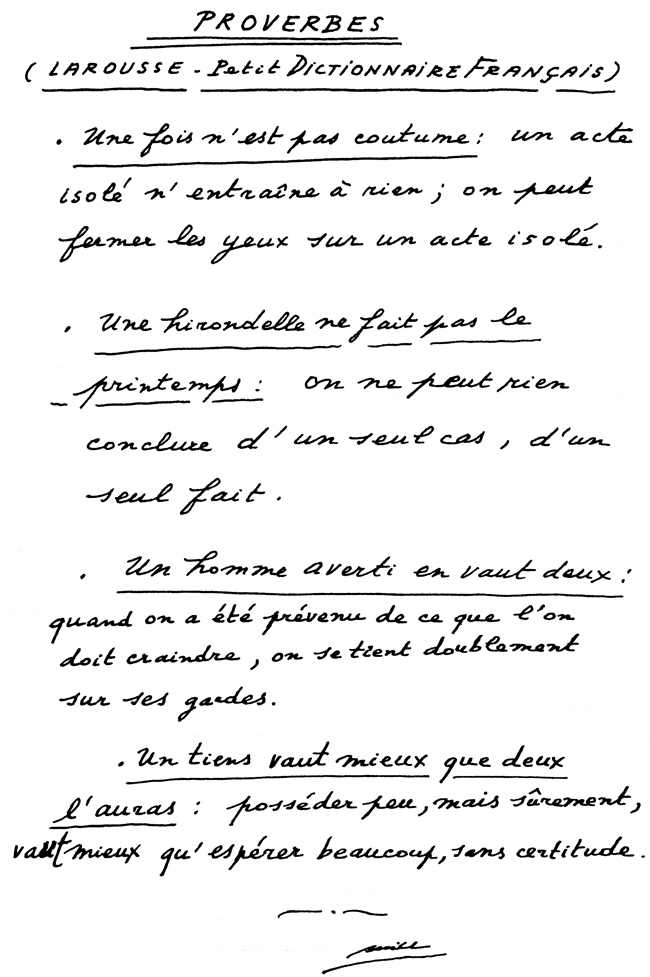 PROVERBES
(LAROUSSE - Petit DICTIONNAIRE FRANÇAIS)
. Une fois n'est pas coutume : un acte
isolé n'entraîne à rien ; on peut
fermer les yeux sur un acte isolé.
. Une hirondelle ne fait pas le
printemps : on ne peut rien
conclure d'un seul cas, d'un
seul fait.
. Un homme averti en vaut deux :
quand on a été prévenu de ce que l'on
doit craindre, on se tient doublement
sur ses gardes.
. Un tiens vaut mieux que deux
l'auras : posséder peu, mais sûrement,
vaut mieux qu'espérer beaucoup, sans certitude.